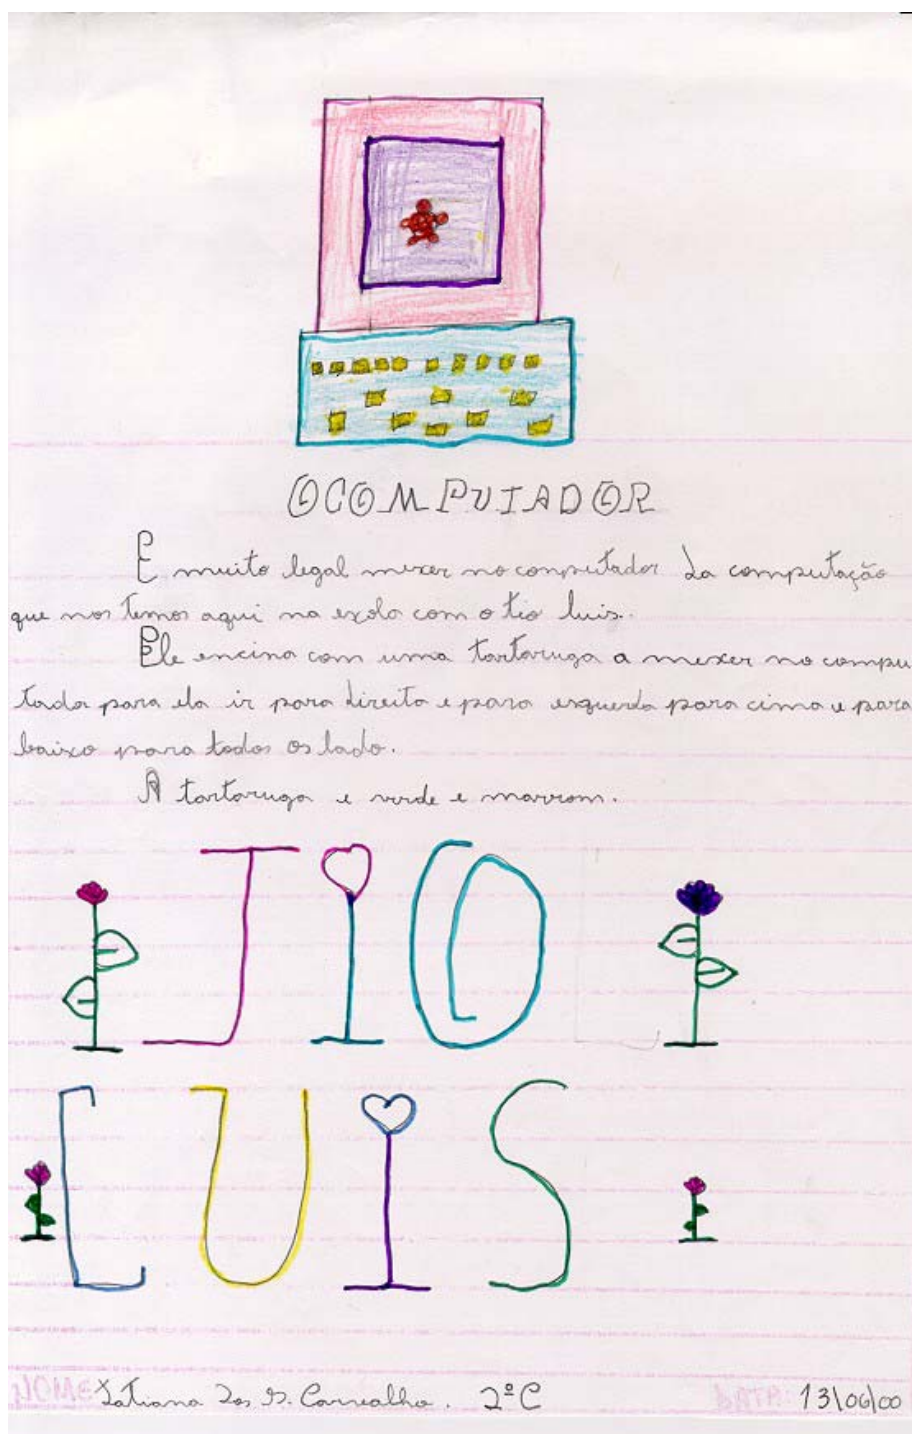 O COMPUTADOR
É muito legal mexer no conputador da computação
que nos temos aqui na escola com o tio luis.
Ele encina com uma tartaruga a mexer no compu
tador para ela ir para direita e para esquerda para cima e para
baixo para todos os lado.
A tartaruga e verde e marrom.
TIO
LUIS
NOME Tatiana dos S. Carvalho. 2ª C DATA 13/06/00